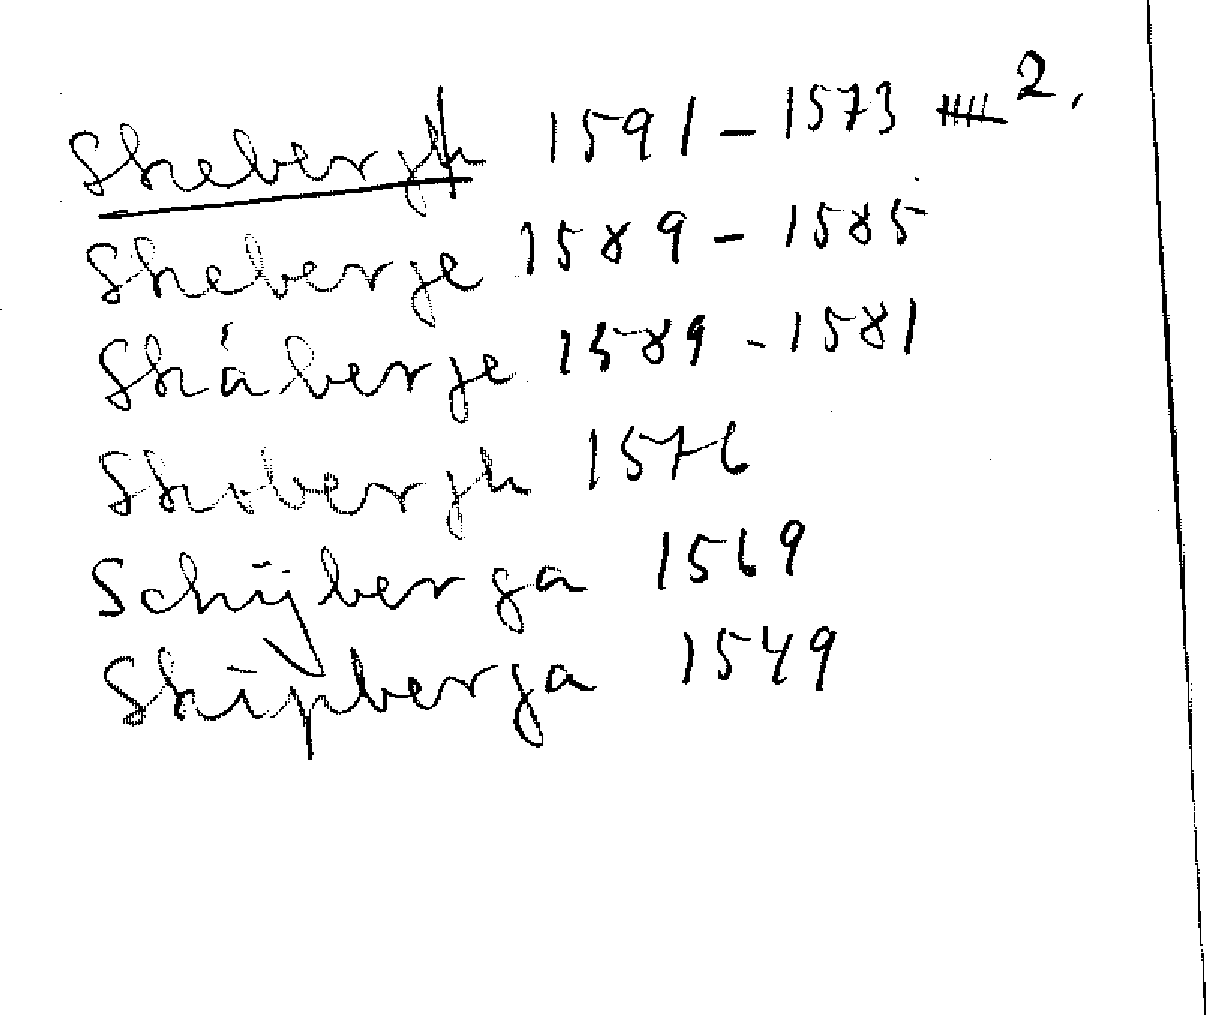 Skebergh 1591 - 1573 2.
Skeberge 1589 - 1585
Skåberge 1589 - 1581
Skobergh 1576
Schÿberga 1569
Skijpberga 1549